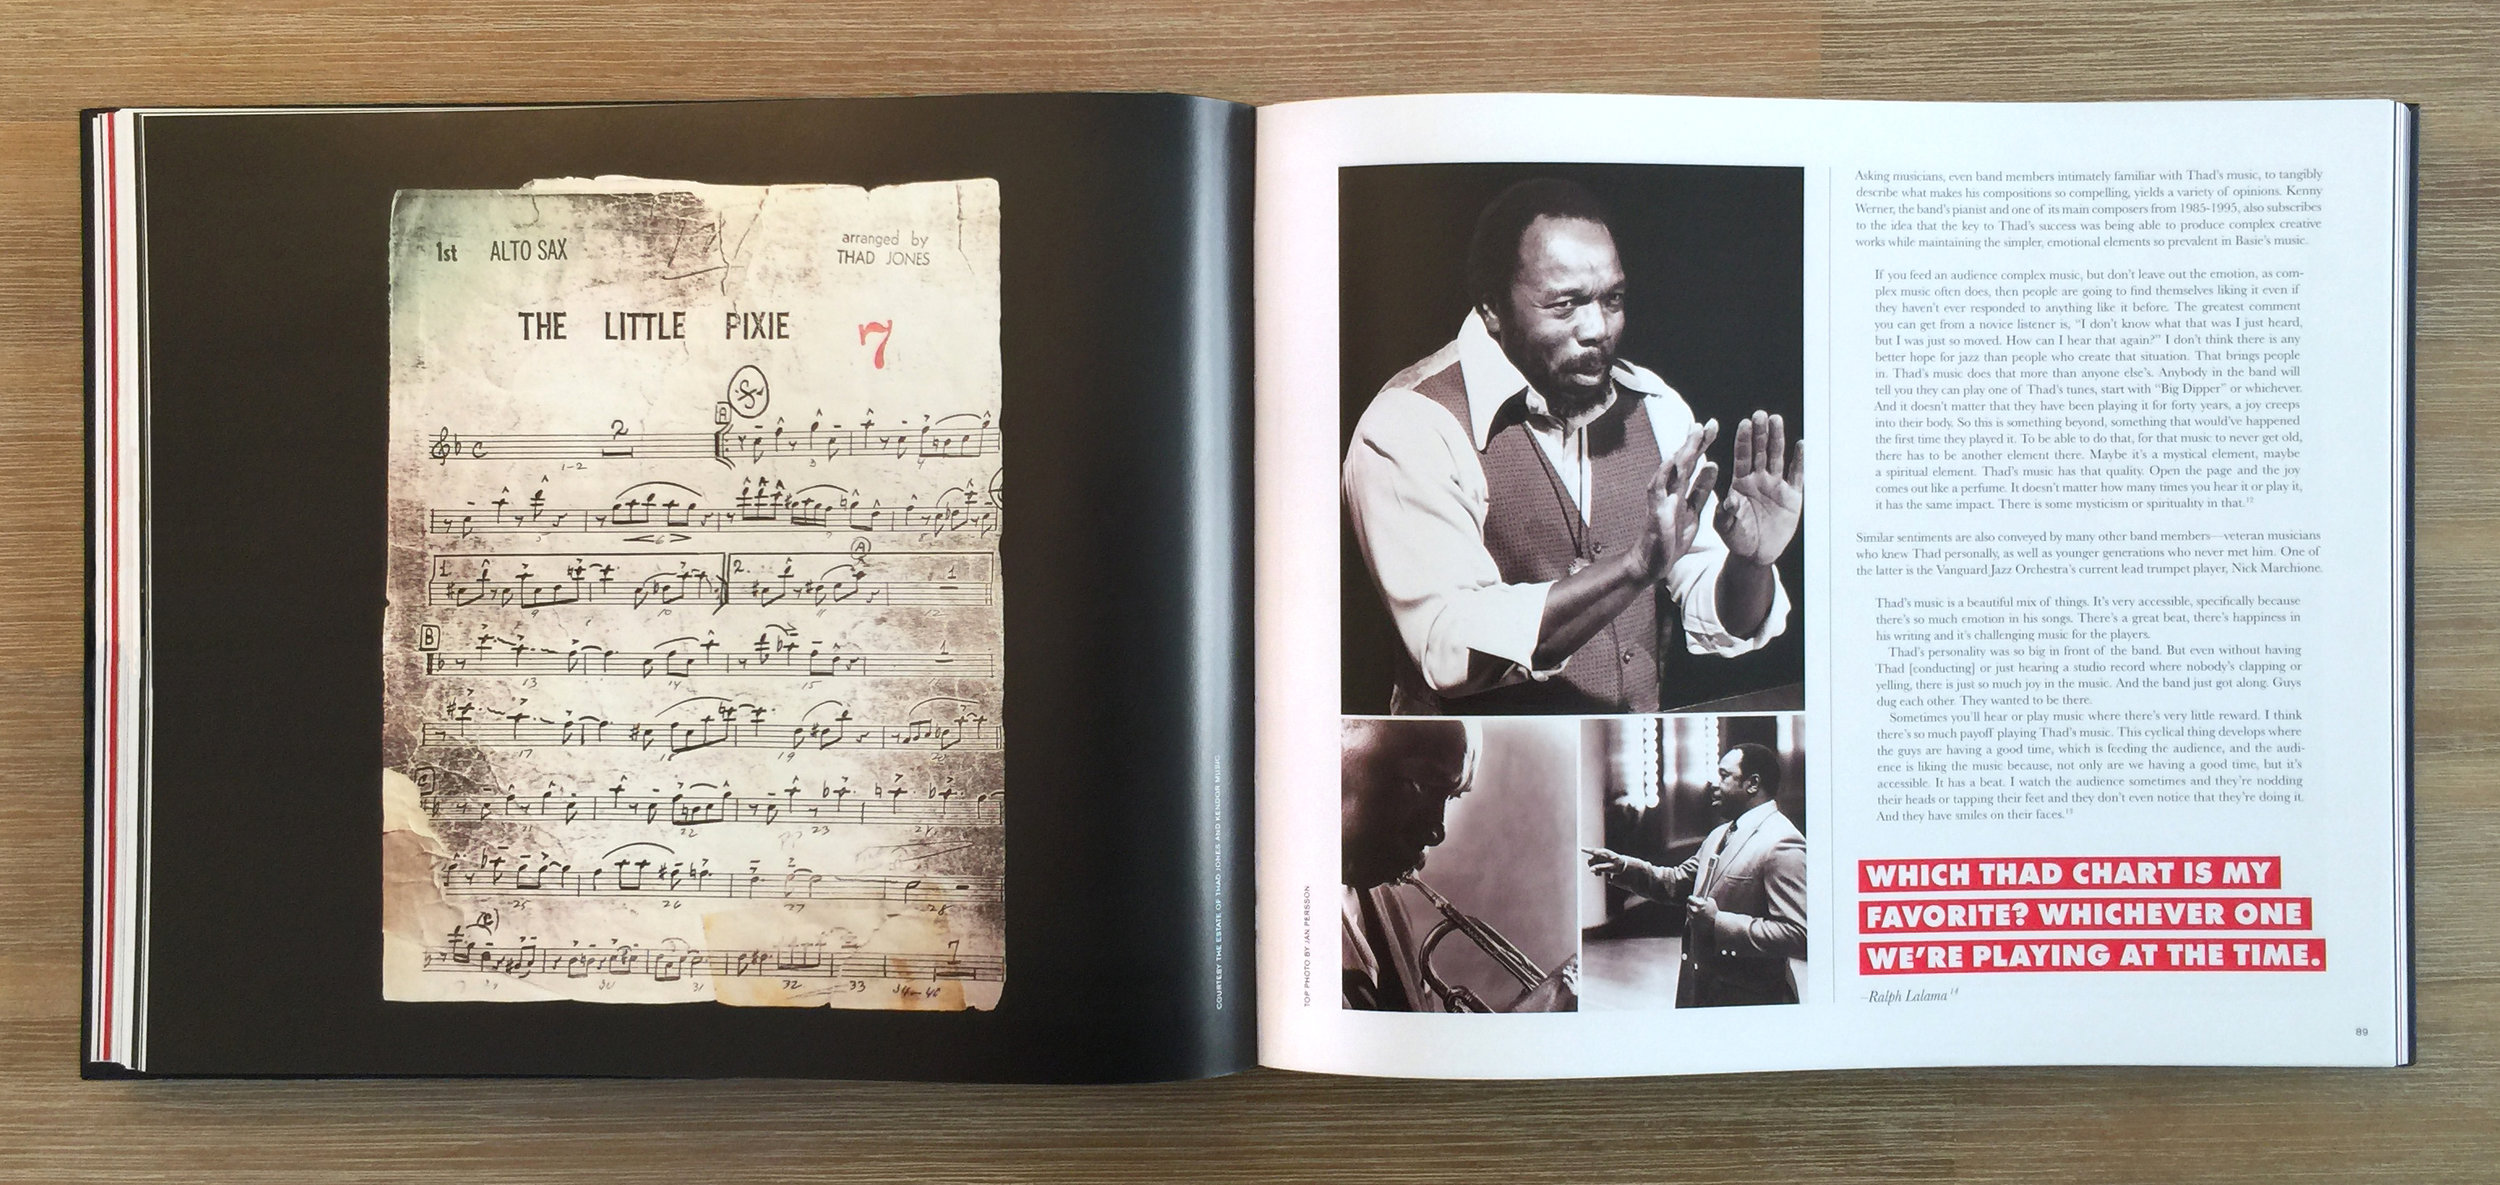 1st ALTO SAX
arranged by
THAD JONES
THE LITTLE PIXIE
7
A
2
1-2
3
4
5
6
7
8
1.
2.
A
1
9
10
11
12
B
1
13
14
15
16
17
18
19
20
C
21
22
23
24
25
26
27
28
7
29
30
31
32
33
34-40
COURTESY THE ESTATE OF THAD JONES AND KENDOR MUSIC
TOP PHOTO BY JAN PERSSON
Asking musicians, even band members intimately familiar with Thad's music, to tangibly
describe what makes his compositions so compelling, yields a variety of opinions. Kenny
Werner, the band's pianist and one of its main composers from 1985-1995, also subscribes
to the idea that the key to Thad's success was being able to produce complex creative
works while maintaining the simpler, emotional elements so prevalent in Basie's music.
If you feed an audience complex music, but don't leave out the emotion, as com-
plex music often does, then people are going to find themselves liking it even if
they haven't ever responded to anything like it before. The greatest comment
you can get from a novice listener is, "I don't know what that was I just heard,
but I was just so moved. How can I hear that again?" I don't think there is any
better hope for jazz than people who create that situation. That brings people
in. Thad's music does that more than anyone else's. Anybody in the band will
tell you they can play one of Thad's tunes, start with "Big Dipper" or whichever.
And it doesn't matter that they have been playing it for forty years, a joy creeps
into their body. So this is something beyond, something that would've happened
the first time they played it. To be able to do that, for that music to never get old,
there has to be another element there. Maybe it's a mystical element, maybe
a spiritual element. Thad's music has that quality. Open the page and the joy
comes out like a perfume. It doesn't matter how many times you hear it or play it,
it has the same impact. There is some mysticism or spirituality in that.12
Similar sentiments are also conveyed by many other band members—veteran musicians
who knew Thad personally, as well as younger generations who never met him. One of
the latter is the Vanguard Jazz Orchestra's current lead trumpet player, Nick Marchione.
Thad's music is a beautiful mix of things. It's very accessible, specifically because
there's so much emotion in his songs. There's a great beat, there's happiness in
his writing and it's challenging music for the players.
Thad's personality was so big in front of the band. But even without having
Thad [conducting] or just hearing a studio record where nobody's clapping or
yelling, there is just so much joy in the music. And the band just got along. Guys
dug each other. They wanted to be there.
Sometimes you'll hear or play music where there's very little reward. I think
there's so much payoff playing Thad's music. This cyclical thing develops where
the guys are having a good time, which is feeding the audience, and the audi-
ence is liking the music because, not only are we having a good time, but it's
accessible. It has a beat. I watch the audience sometimes and they're nodding
their heads or tapping their feet and they don't even notice that they're doing it.
And they have smiles on their faces.13
WHICH THAD CHART IS MY
FAVORITE? WHICHEVER ONE
WE'RE PLAYING AT THE TIME.
–Ralph Lalama14
89